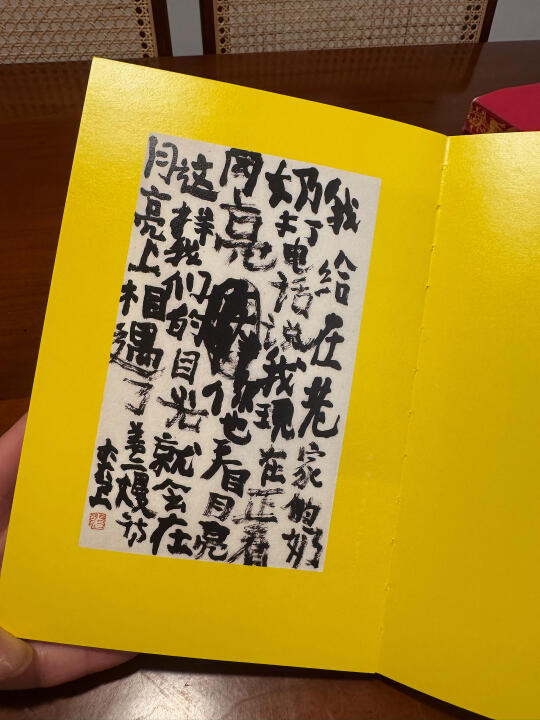 我给在老家的奶
奶打电话说我现在正看
月亮你也看月亮
这样我们的目光就会在
月亮上相遇了
姜二嫚诗